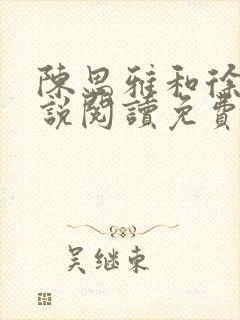 陳思雅和徐
說閱讀免費
吴继東